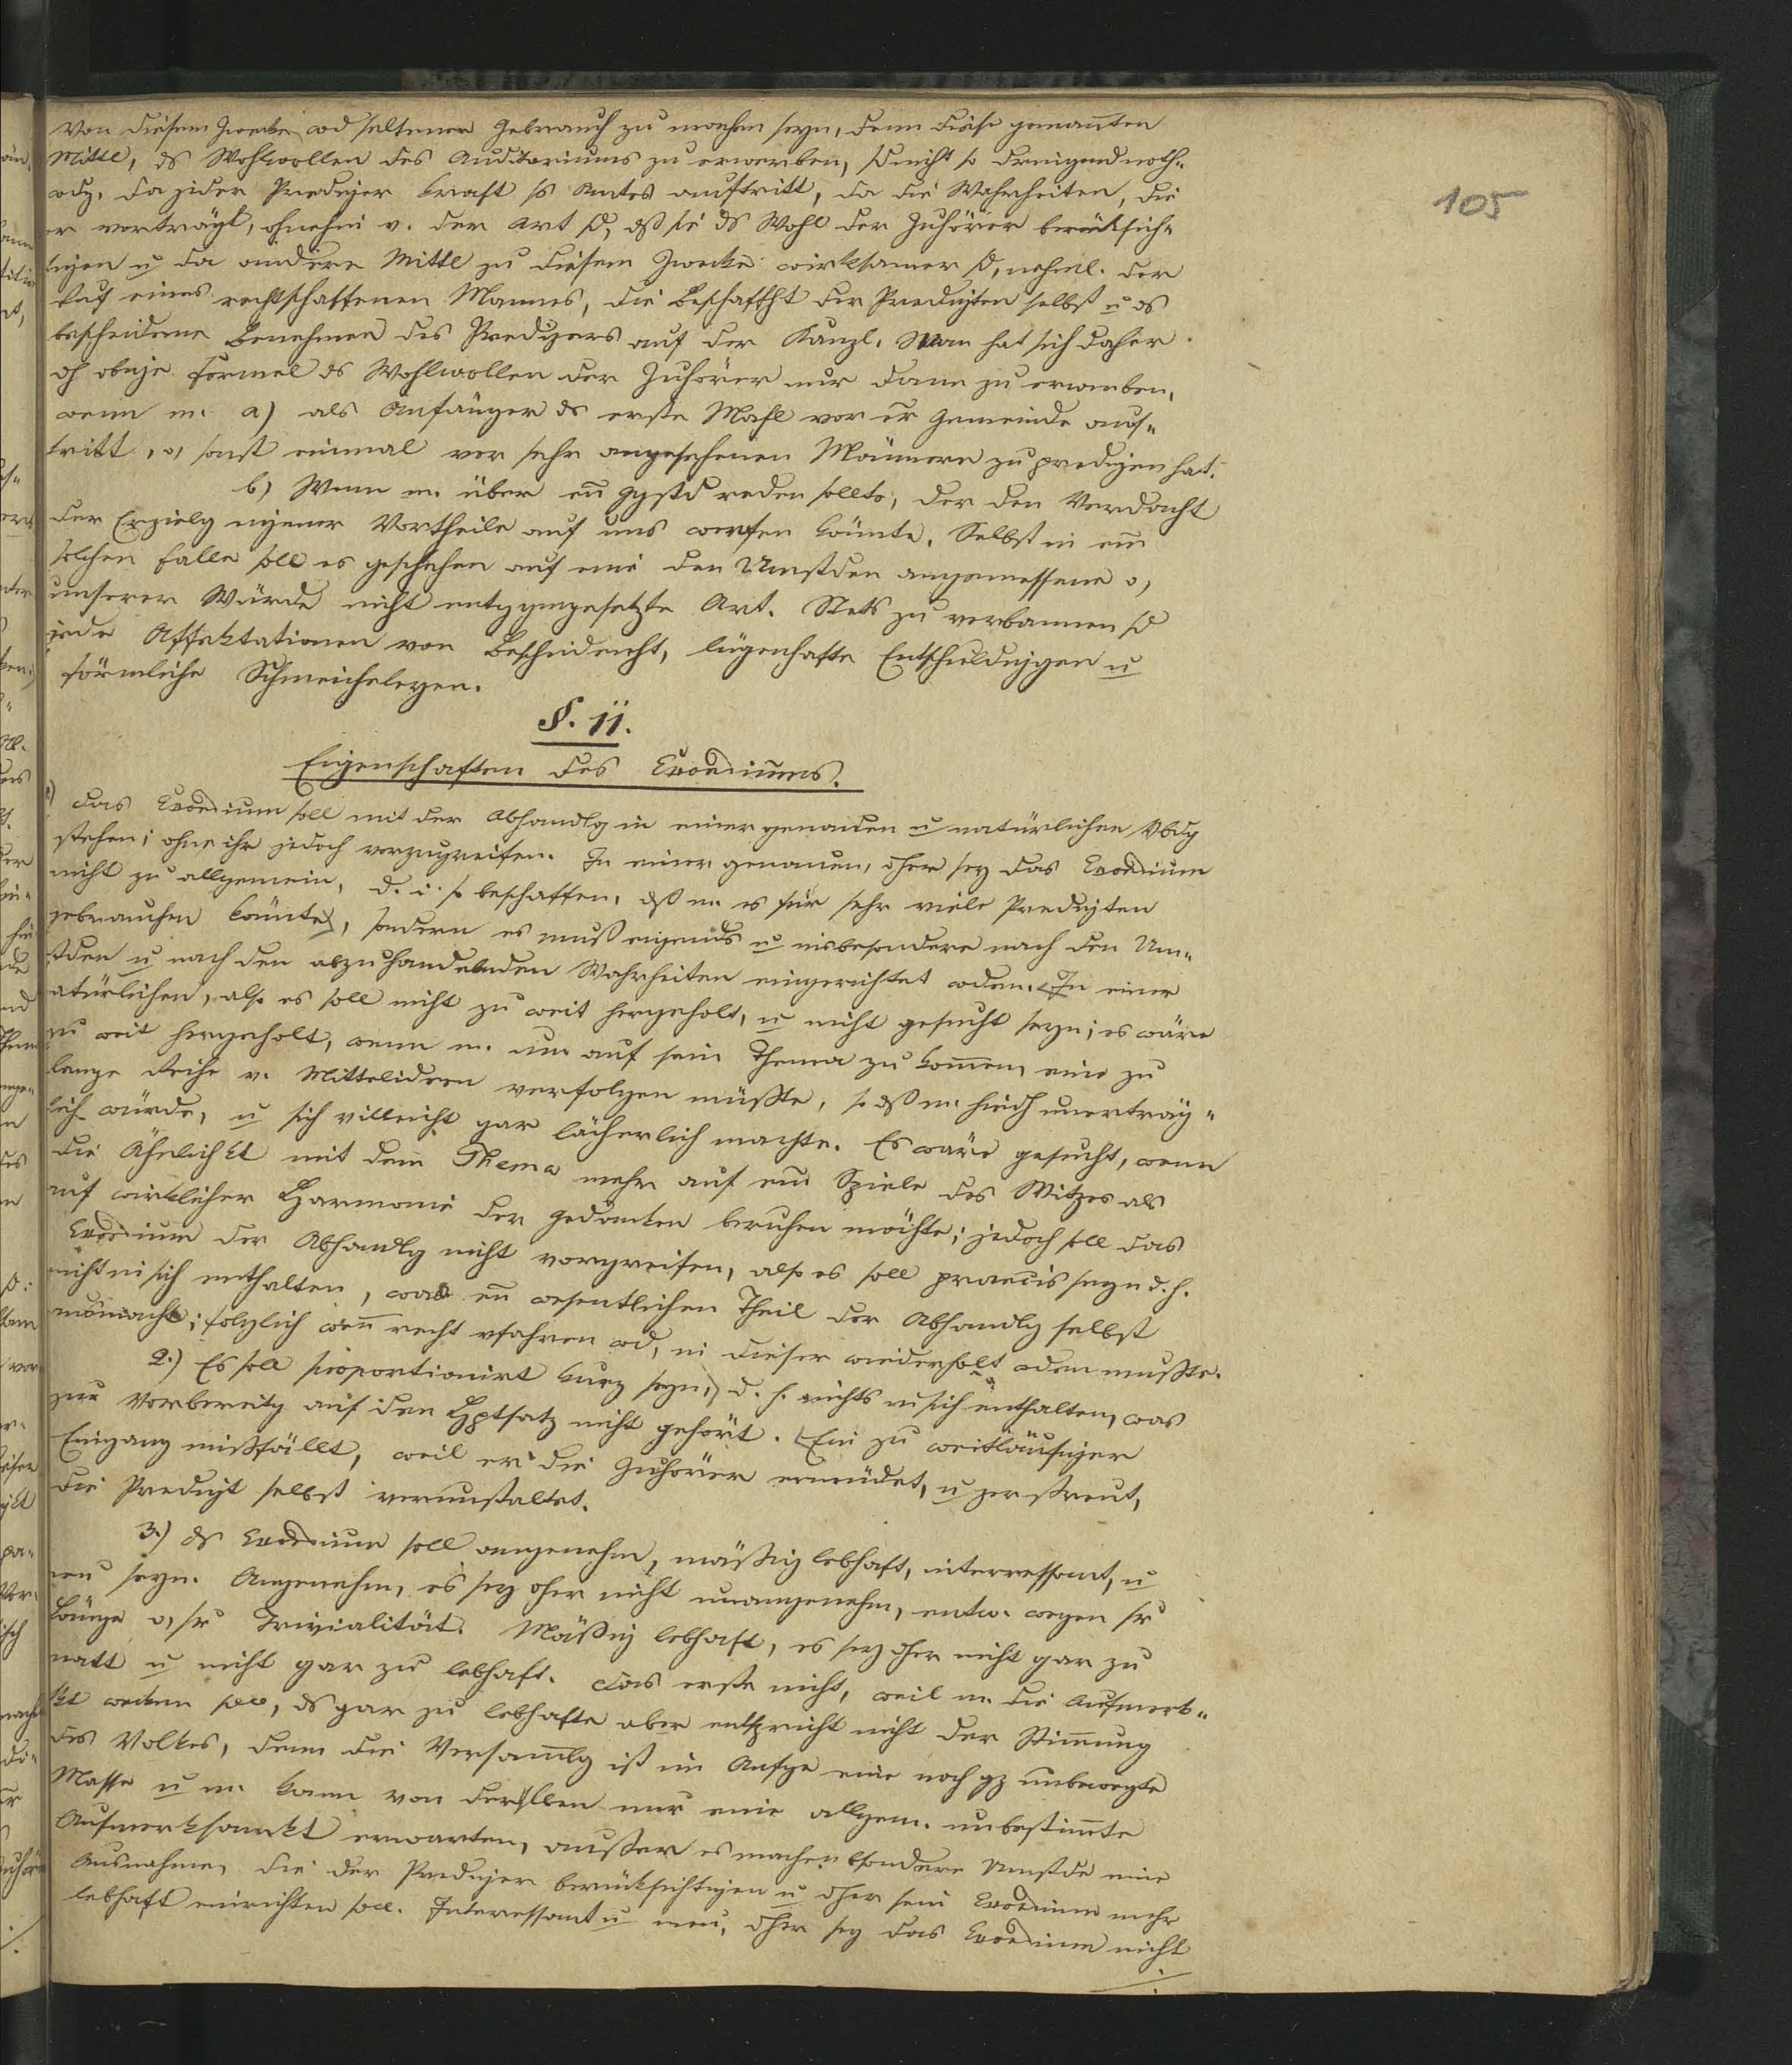 105
Von diesem Zwecke wd seltener Gebrauch zu machen seyn, denn diese genannten
Mittl, ds Wohlwollen des Auditoriums zu erwerben, sd nicht so dringend noth-
wdg, da jeder Prediger kraft ss Amtes auftritt, da die Wahrheiten, die
er vorträgt, ohnehin v. der Art sd, dß sie ds Wohl der Zuhörer berücksich-
tigen u da andere Mittl zu diesem Zwecke wirksamer sd, nehml. der
Ruf eines rechtschaffenen Mannes, die Beschaffht der Predigten selbst u ds
bescheidene Benehmen des Predigers auf der Kanzl. Man hat sich daher
dh obige Formel ds Wohlwollen der Zuhörer nur dann zu erwerben,
wenn m. a) als Anfänger ds erste Mahl vor er Gemeinde auf-
tritt, o, sonst einmal vor sehr angesehenen Männern zu predigen hat.
b) Wenn m. über en Ggstd reden sollte, der den Verdacht
der Erzielg eigener Vortheile auf uns werfen könnte. Selbst in em
solchen Falle soll es geschehen auf eine den Umstden angemessene o,
unserer Würde nicht entggngesetzte Art. Stets zu verbannen sd
jede Affektationen von Bescheidenht, lügenhafte Entschuldiggen u
förmliche Schmeicheleyen.
§. 11.
Eigenschaften des Exordiums.
1) Das Exordium soll mit der Abhandlg in einer genauen u natürlichen Vbdg
stehen; ohne ihr jedoch vorzugreifen. In einer genauen, dher sey das Exordium
nicht zu allgemein, d. i. so beschaffen, dß m. es für sehr viele Predigten
gebrauchen könnte, sondern es muß eigends u insbesondere nach den Um-
stden u nach den abzuhandelnden Wahrheiten eingerichtet wden. In einer
natürlichen, also es soll nicht zu weit hergeholt, u nicht gesucht seyn; es wäre
zu weit hergeholt, wenn m. um auf sein Thema zu komen, eine zu
lange Reihe v. Mittelideen verfolgen müßte, so dß m. hiedh unerträg-
lich würde, u sich villeicht gar lächerlich machte. Es wäre gesucht, wenn
die Ähnlichkt mit dem Thema mehr auf em Spiele des Witzes als
auf wirklicher Harmonie der Gedanken beruhen möchte; jedoch soll das
Exordium der Abhandlg nicht vorgreifen, also es soll praecis seyn d. h.
nicht in sich enthalten, was en wesentlichen Theil der Abhandlg selbst
ausmacht; folglich wenn recht vfahren wd, in dieser wiederholt wden mußte.
2.) Es soll proportionirt kurz seyn, d. h. nichts in sich enthalten, was
zur Vorbereitg auf den Hptsatz nicht gehört. Ein zu weitläufiger
Eingang mißfällt, weil er die Zuhörer ermüdet, u zerstreut,
die Predigt selbst verunstaltet.
3.) ds Exordium soll angenehm, mäßig lebhaft, interressant, u
neu seyn. Angenehm, es sey dher nicht unangenehm, entw. wegen sr
Länge o, sr Trivialität. Mäßig lebhaft, es sey dher nicht gar zu
matt u nicht gar zu lebhaft. Das erste nicht, weil m. die Aufmerk-
skt wecken soll, ds gar zu lebhafte aber entspricht nicht der Stimung
des Volkes, denn die Versamlg ist im Anfge eine noch gz unbewegte
Masse u m. kann von derselben nur eine allgem. unbestimte
Aufmerksamkt erwarten, außer es machen bsondere Umstde eine
Ausnahme, die der Prediger berücksichtigen u dher sein Exordium mehr
lebhaft einrichten soll. Interessant u neu, dher sey das Exordium nicht